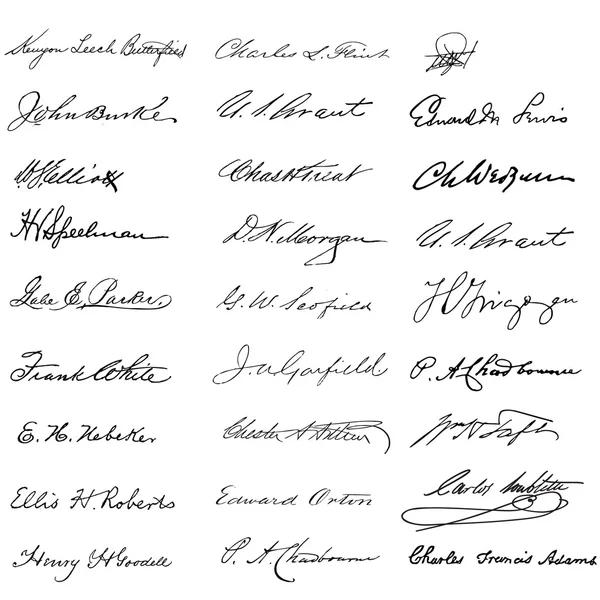 Kenyon Leech Butterfield Charles L. Flint
John Burke U. S. Grant Edward M Lewis
W S Elliott Chas H Treat
H V Speelman D. N. Morgan U. S. Grant
Gabe E. Parker. G. W. Scofield
Frank White J. A. Garfield P. A. Chadbourne
E. H. Nebeker Chester A Arthur Wm H Taft
Ellis H. Roberts Edward Orton Carlos Soublette
Henry H Goodell P. A. Chadbourne Charles Francis Adams